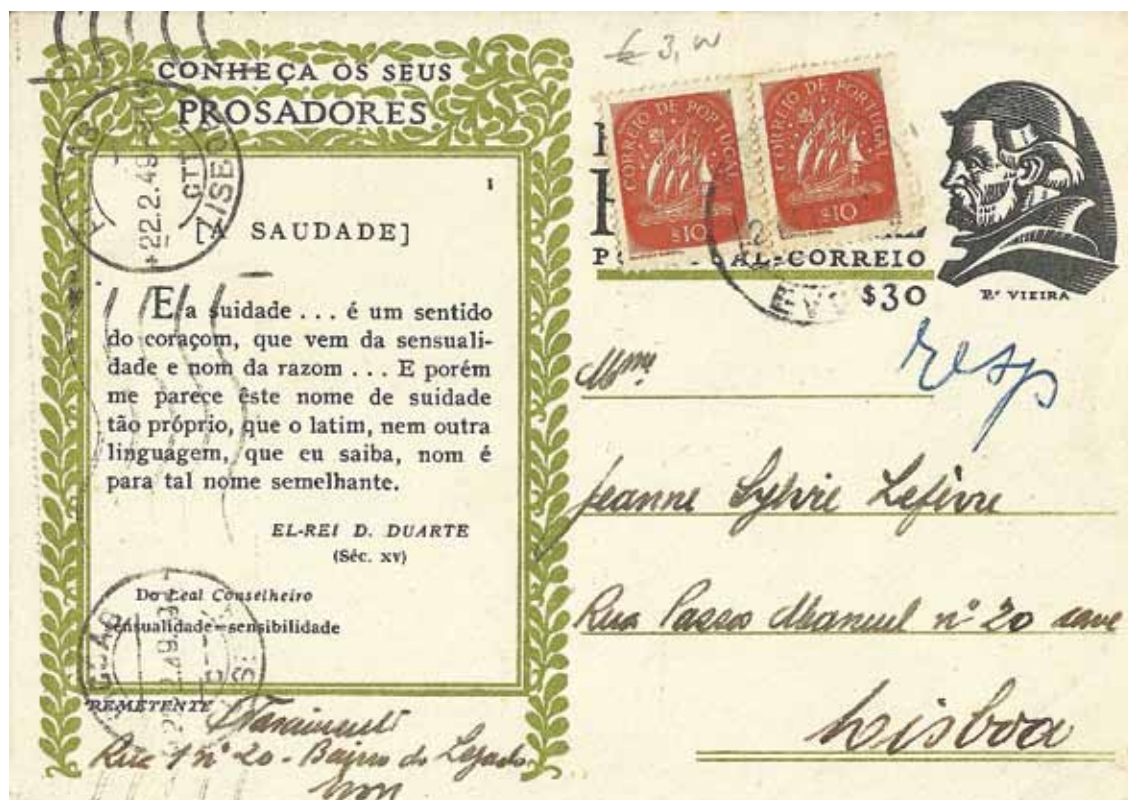 CONHEÇA OS SEUS
PROSADORES
1
[A SAUDADE]
E a suidade . . . é um sentido
do coraçom, que vem da sensuali-
dade e nom da razom . . . E porém
me parece êste nome de suidade
tão próprio, que o latim, nem outra
linguagem, que eu saiba, nom é
para tal nome semelhante.
EL-REI D. DUARTE
(Séc. XV)
Do Leal Conselheiro
sensualidade=sensibilidade
REMETENTE
Rua 1 nº 20 - Bairro do
22.2.49
CTT
LISBOA
€ 3,
CORREIO DE PORTUGAL
$10
CORREIO DE PORTUGAL
$10
CORREIO
$30
Pe VIEIRA
resp
Mme
Jeanne Sylvie Lefèvre
Rua Passos Manuel nº 20 cave
Lisboa